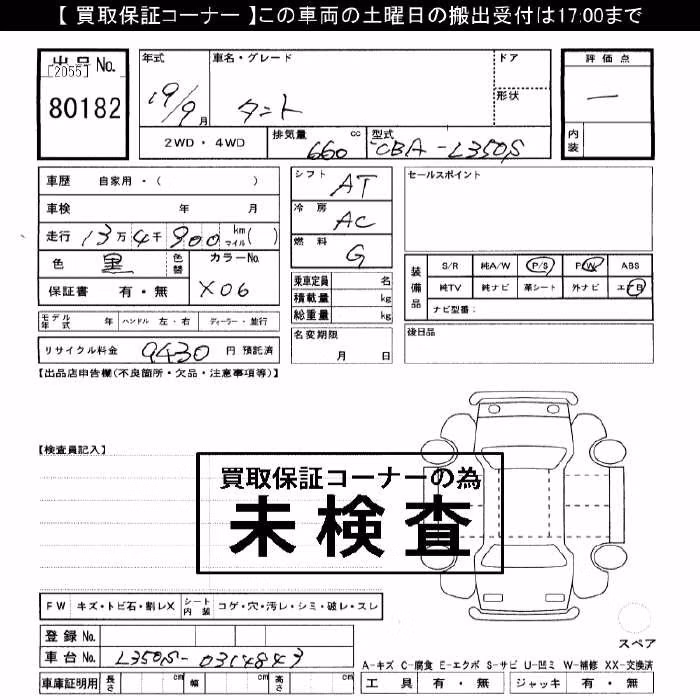 【 買取保証コーナー 】この車両の土曜日の搬出受付は17:00まで
出品No.
[2055]
80182
年式
19/9月
車名・グレード
タント
ドア
形状
評価点
一
内装
2WD・4WD
排気量 660 cc
型式 CBA-L350S
車歴 自家用・( )
車検 年 月
走行 13万4千900 km マイル( )
色 黒 色替 カラーNo.
保証書 有・無 X06
シフト AT
冷房 AC
燃料 G
乗車定員 名
積載量 kg
総重量 kg
セールスポイント
装備品
S/R 純A/W P/S P/W ABS
純TV 純ナビ 革シート 外ナビ エアB
ナビ型番:
モデル年式 年 ハンドル 左・右 ディーラー・並行
名変期限
月 日
後日品
リサイクル料金 9430 円 預託済
【出品店申告欄(不良箇所・欠品・注意事項等)】
【検査員記入】
買取保証コーナーの為
未検査
FW キズ・トビ石・割レX シート内装 コゲ・穴・汚レ・シミ・破レ・スレ
登録No.
車台No. L350S-0314843
車庫証明用 長さ cm 幅 cm 高さ cm
スペア
A-キズ C-腐食 E-エクボ S-サビ U-凹ミ W-補修 XX-交換済
工具 有・無 ジャッキ 有・無